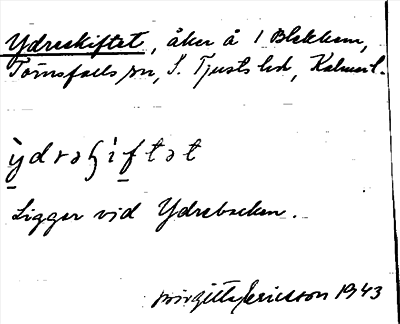 Ydreskiftet, åker å 1 Blekhem,
Törnsfalls sn, S. Tjusts hd, Kalmar l.
ỳdrəʃìftət
Ligger vid Ydrebacken.
Birgitta Ericsson 1943